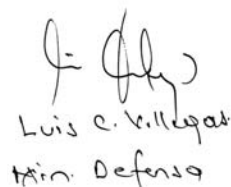 Luis C. Villegas.
Min. Defensa